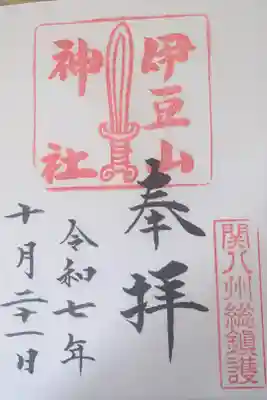 伊豆山
神社
奉拝
関八州総鎮護
令和七年
十月二十一日